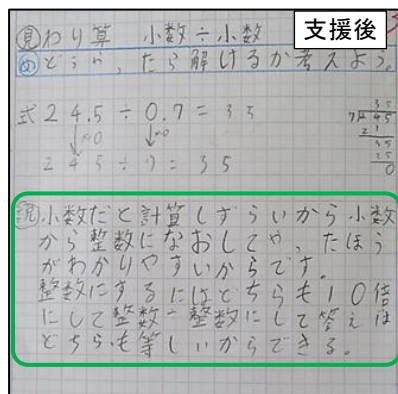 支援後
見 わり算 小数÷小数
め どうやったら解けるか考えよう。
式 24.5÷0.7=35
↓×10 ↓×10
245÷7=35
35
7)245
21
35
35
0
説 小数だと計算しずらいから小数
から整数になおしてやったほう
がわかりやすいからです。
整数にするにはどちらも10倍
にして整数÷整数にして答えは
どちらも等しいからできる。